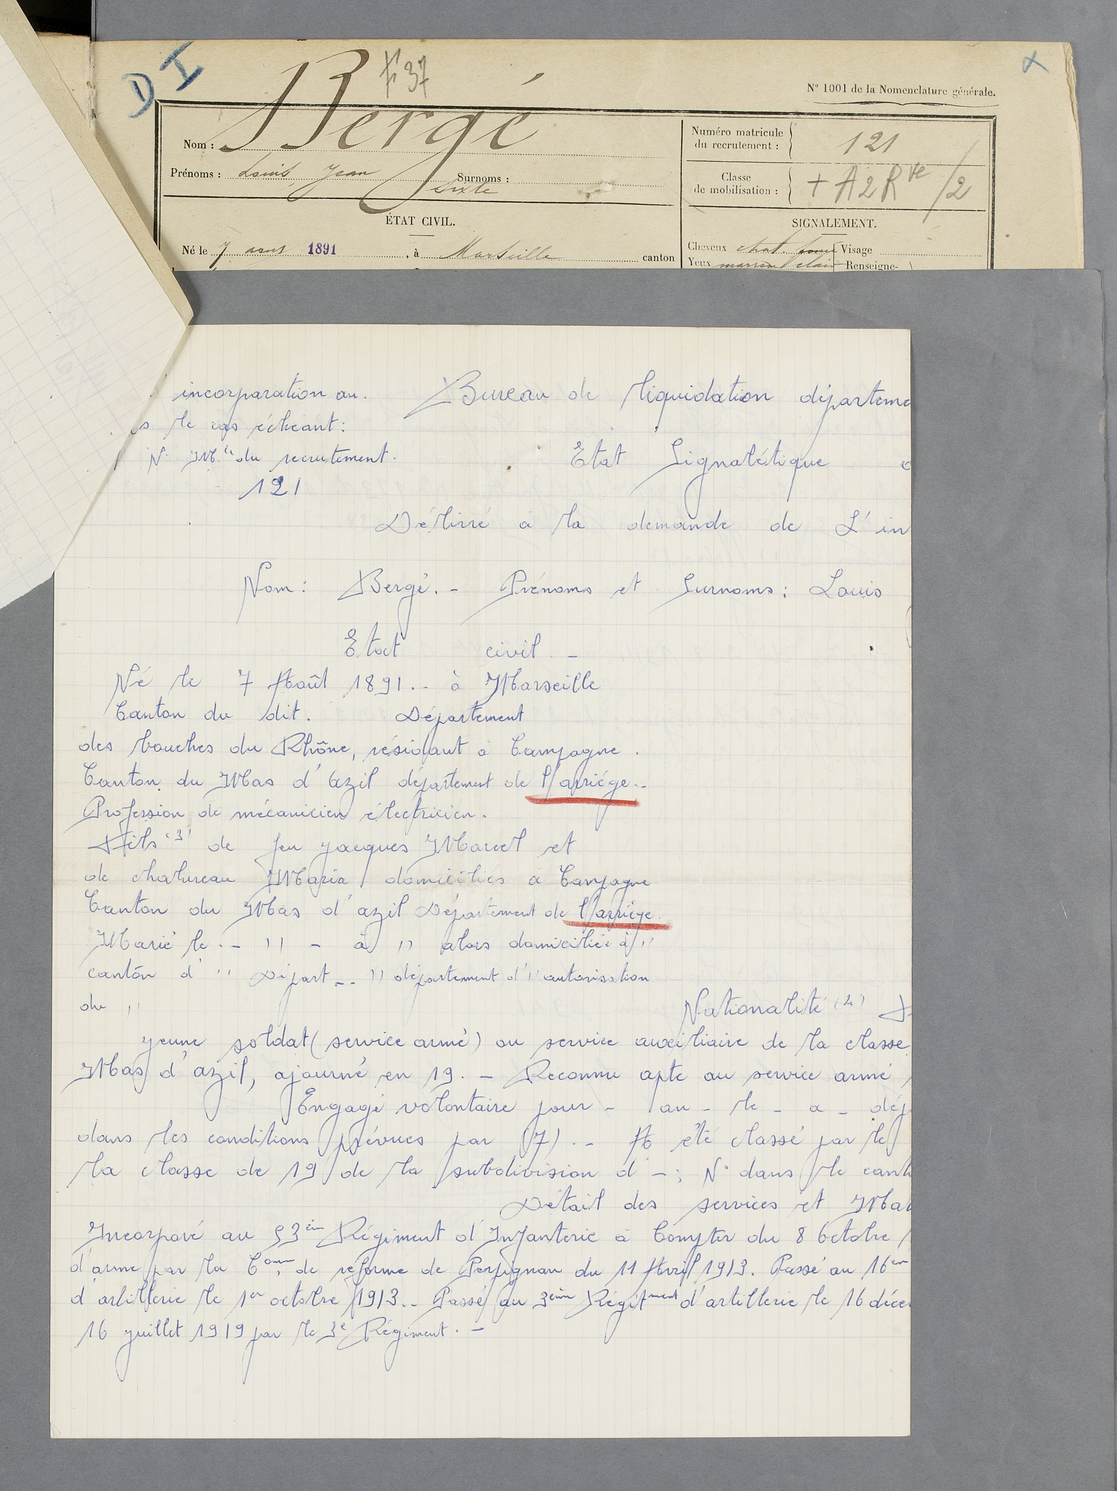 D I
F 37
x
N° 1001 de la Nomenclature générale.
Nom : Bergé
Prénoms : Louis Jean Surnoms :
Sixte
Numéro matricule
du recrutement : 121
Classe
de mobilisation : + A2Rve/2
ÉTAT CIVIL.
SIGNALEMENT.
Né le 7 août 1891, à Marseille canton
Cheveux chat. Visage
Yeux marron clair Renseigne-
incorporation au.
Bureau de liquidation départeme
s le cas échéant:
N° Mle du recrutement.
Etat Signalétique
121
Délivré à la demande de L'in
Nom: Bergé. - Prénoms et Surnoms: Louis
Etat civil -
Né le 7 Août 1891.. à Marseille
Canton du dit. Département
des bouches du Rhône, résidant à Campagne.
Canton du Mas d'Azil département de l'arriége..
Profession de mécanicien électricien.
Fils (3) de feu Jacques Marcel et
de chalureau Maria domiciliés à Campagne
Canton du Mas d'azil Département de l'arriége.
Marié le .- " - à " alors domiciliée à "
cantôn d' " Départ -- " département d' " autorisation
du "
Nationalité (4) F
jeune soldat (service armé) ou service auxiliaire de la classe
Mas d'azil, ajourné en 19. - Reconnu apte au service armé
Engagé volontaire pour - au - le - a - dép
dans les conditions prévues par (7) .- A été classé par le
la classe de 19 de la subdivision d -; N° dans le cant
Détail des services et
Incorporé au 53ème Régiment d'Infanterie à Compter du 8 Octobre
d'arme par la Com de réforme de Perpignan du 11 Avril 1913. Passé au 16em
d'artillerie le 1er octobre 1913.. Passé au 3ème Régitment d'artillerie le 16 déce
16 juillet 1919 par le 3e Régiment. -